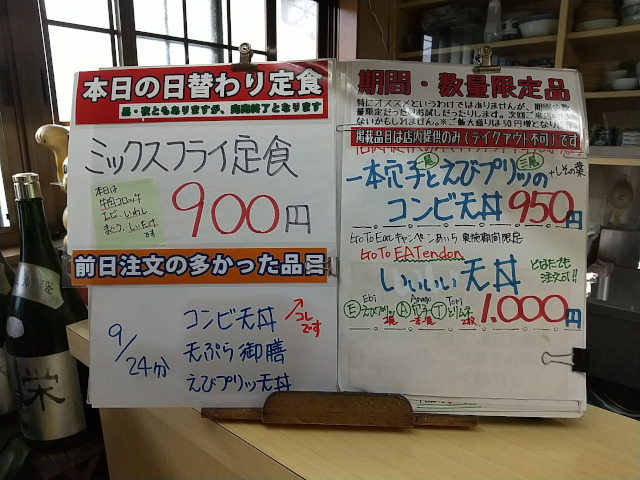 本日の日替わり定食
昼・夜ともありますが、完売終了となります
ミックスフライ定食
本日は
牛肉コロッケ
エビ、いわし
しいたけ
です
900円
前日注文の多かった品目
9/24分
コンビ天丼
コレです
天ぷら御膳
えびプリッツ天丼
期間・数量限定品
特にオススメというわけではありませんが、期間や数
量限定だったりお試しだったりします。次回ご来店時には
ないかもしれません。※ご飯大盛りは50円増となります
掲載品目は店内提供のみ(テイクアウト不可)です
一本穴子とえびプリッツの
+しその葉
コンビ天丼 950円
Go To Eatキャンペーンあいち 実施期間限定
Go To EATendon
いいいい天丼
どなたでも
注文可!!
Ebi Anago Tori
Ⓔえびプリッツ2尾 Ⓐ穴子一本 Ⓣとりムネ2枚
1,000円
栄